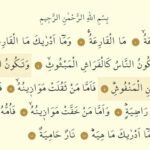 بِسْمِ اللَّهِ الرَّحْمَٰنِ الرَّحِيمِ
مَا الْقَارِعَةُ ۝ وَمَا أَدْرَىٰكَ مَا الْقَارِعَ
كُونُ النَّاسُ كَالْفَرَاشِ الْمَبْثُوثِ ۝ وَتَكُونُ
الْمَنفُوشِ ۝ فَأَمَّا مَن ثَقُلَتْ مَوَازِينُهُ ۝
رَّاضِيَةٍ ۝ وَأَمَّا مَنْ خَفَّتْ مَوَازِينُهُ ۝ فَأُمُّهُ
أَدْرَىٰكَ مَا هِيَهْ ۝ نَارٌ حَامِيَةٌ ۝